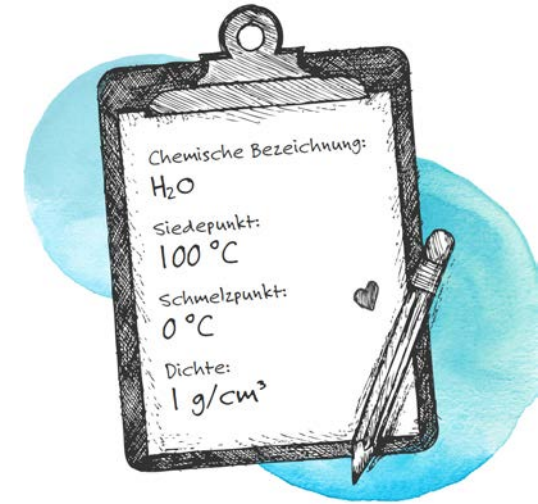 Chemische Bezeichnung:
H₂O
Siedepunkt:
100 °C
Schmelzpunkt:
0 °C
Dichte:
1 g/cm³